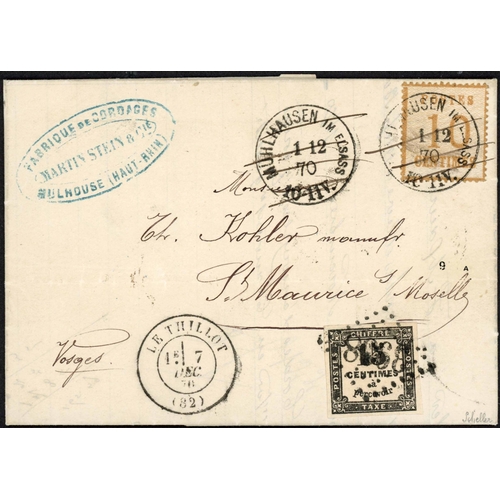 FABRIQUE DE CORDAGES
MARTIN STEIN & CIE
MULHOUSE (HAUT-RHIN)
MÜHLHAUSEN IM ELSASS
1 12
70
10-11V.
POSTES
10
CENTIMES
MÜHLHAUSEN IM ELSASS
1 12
70
10-11V.
Monsieur
Th. Kohler manufr.
St Maurice s/Moselle
Vosges
9 A
LE THILLOT
1E 7
DEC.
70
(82)
CHIFFRE
POSTES
15
CENTIMES
à
percevoir
TAXE
Scheller